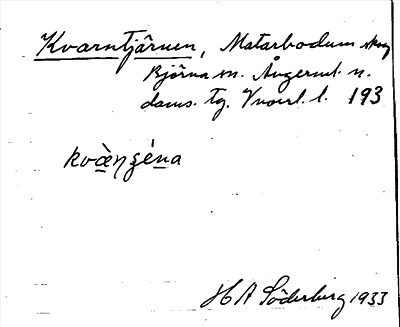 Kvarntjärnen, Matarbodum skog
Björna sn. Ångerml. n.
doms. tg. l. 193
kvàŋʂéna
H A Söderberg 1933